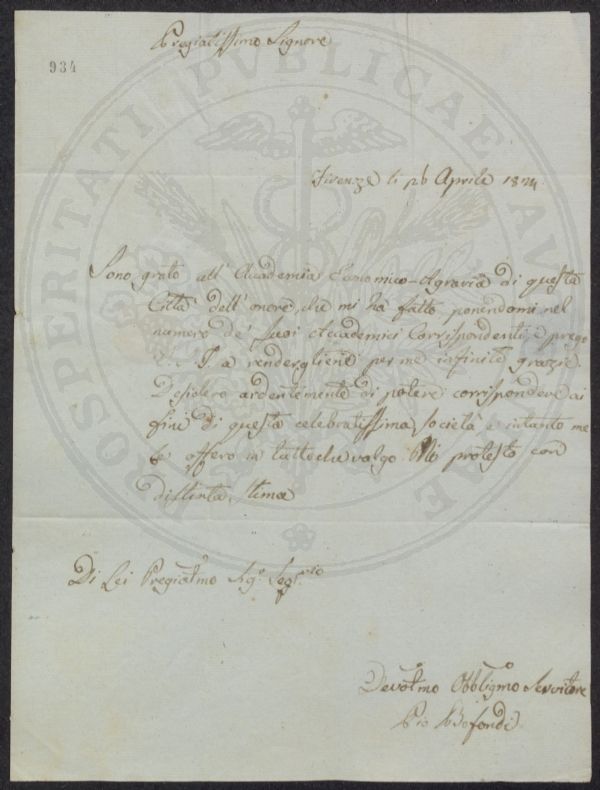 Pregiatissimo Signore
934
Firenze li 26 Aprile 1824.
Sono grato all' Accademia Economico-Agraria di questa
Città dell' onore, che mi ha fatto ponendomi nel
numero de' suoi Accademici Corrispondenti, e prego
a rendergliene per me infinite grazie.
Desidero ardentemente di potere corrispondere ai
fini di questa celebratissima società e intanto me
le offero in tutto che valgo. Mi protesto con
distinta stima
Di Lei Pregiatmo Sigr. Segrio
Devotmo Obbligmo Servitore
Pio Bofondi
PROSPERITATI PUBLICAE AUGENDAE